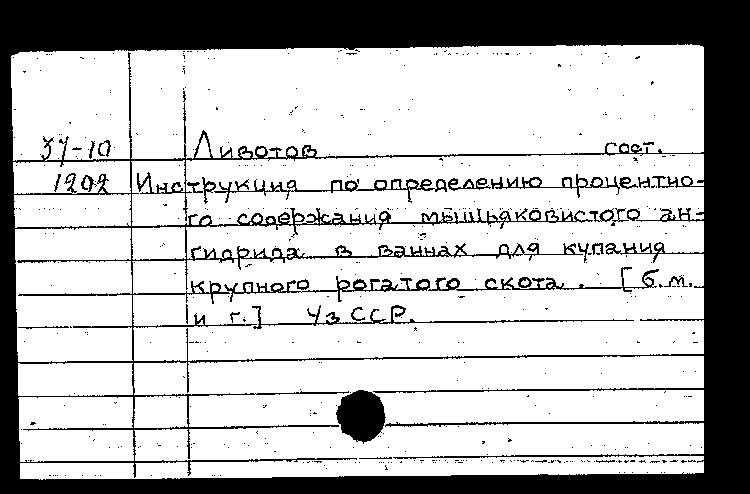 37-10 Ливотов сост.
1202 Инструкция по определению процентно-
го содержания мышьяковистого ан-
гидрида в ваннах для купания
крупного рогатого скота. [б.м.
и г.] УзССР.